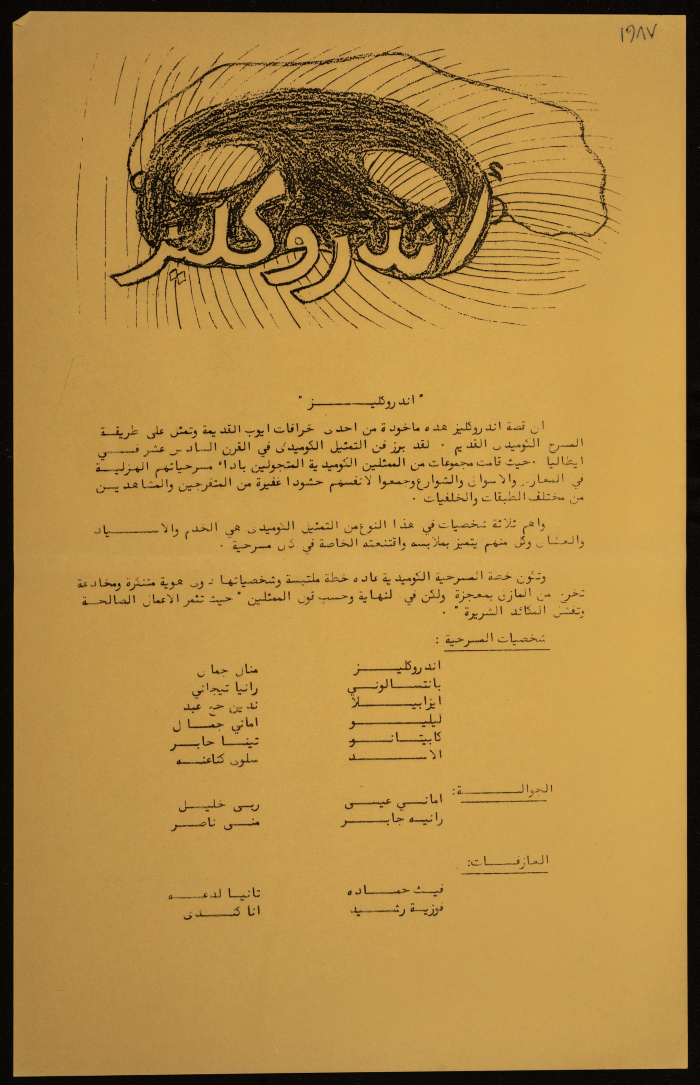 ١٩٨٧
اندروكليز
" اندروكليز "
ان قصة اندروكليز هذه ماخوذة من احدى خرافات ايوب القديمة وتمثل على طريقة
المسرح الكوميدى القديم . لقد برز فن التمثيل الكوميدى في القرن السادس عشر في
ايطاليا . حيث قامت مجموعات من الممثلين الكوميدية المتجولين باداء مسرحياتهم الهزلية
في المعارض والاسواق والشوارع وجمعوا لانفسهم حشودا غفيرة من المتفرجين والمشاهدين
من مختلف الطبقات والخلفيات .
واهم ثلاثة شخصيات في هذا النوع من التمثيل الكوميدى هي الخدم والاسياد
والعشاق وكل منهم يتميز بملابسه واقتنعته الخاصة في كل مسرحية .
وتكون خطة المسرحية الكوميدية عاده خطة ملتبسة وشخصياتها ذوى هوية متنكرة ومخادعة
تخرج من المازق بمعجزة ولكن في النهاية وحسب قول الممثلين " حيث تثمر الاعمال الصالحة
وتفشل المكائد الشريرة " .
شخصيات المسرحية :
اندروكليز منال جمال
بانتسالوني رانيا تيجاني
ايزابيلا ندين حج عبد
ليليو اماني جمال
كابيتانو تينا جابر
الاسد سلوى كناعنه
الجوالة :
اماني عيسى ربى خليل
رانيه جابر منى ناصر
العازفات :
فيث حماده تانيا لدعه
فوزية رشيد انا كندى